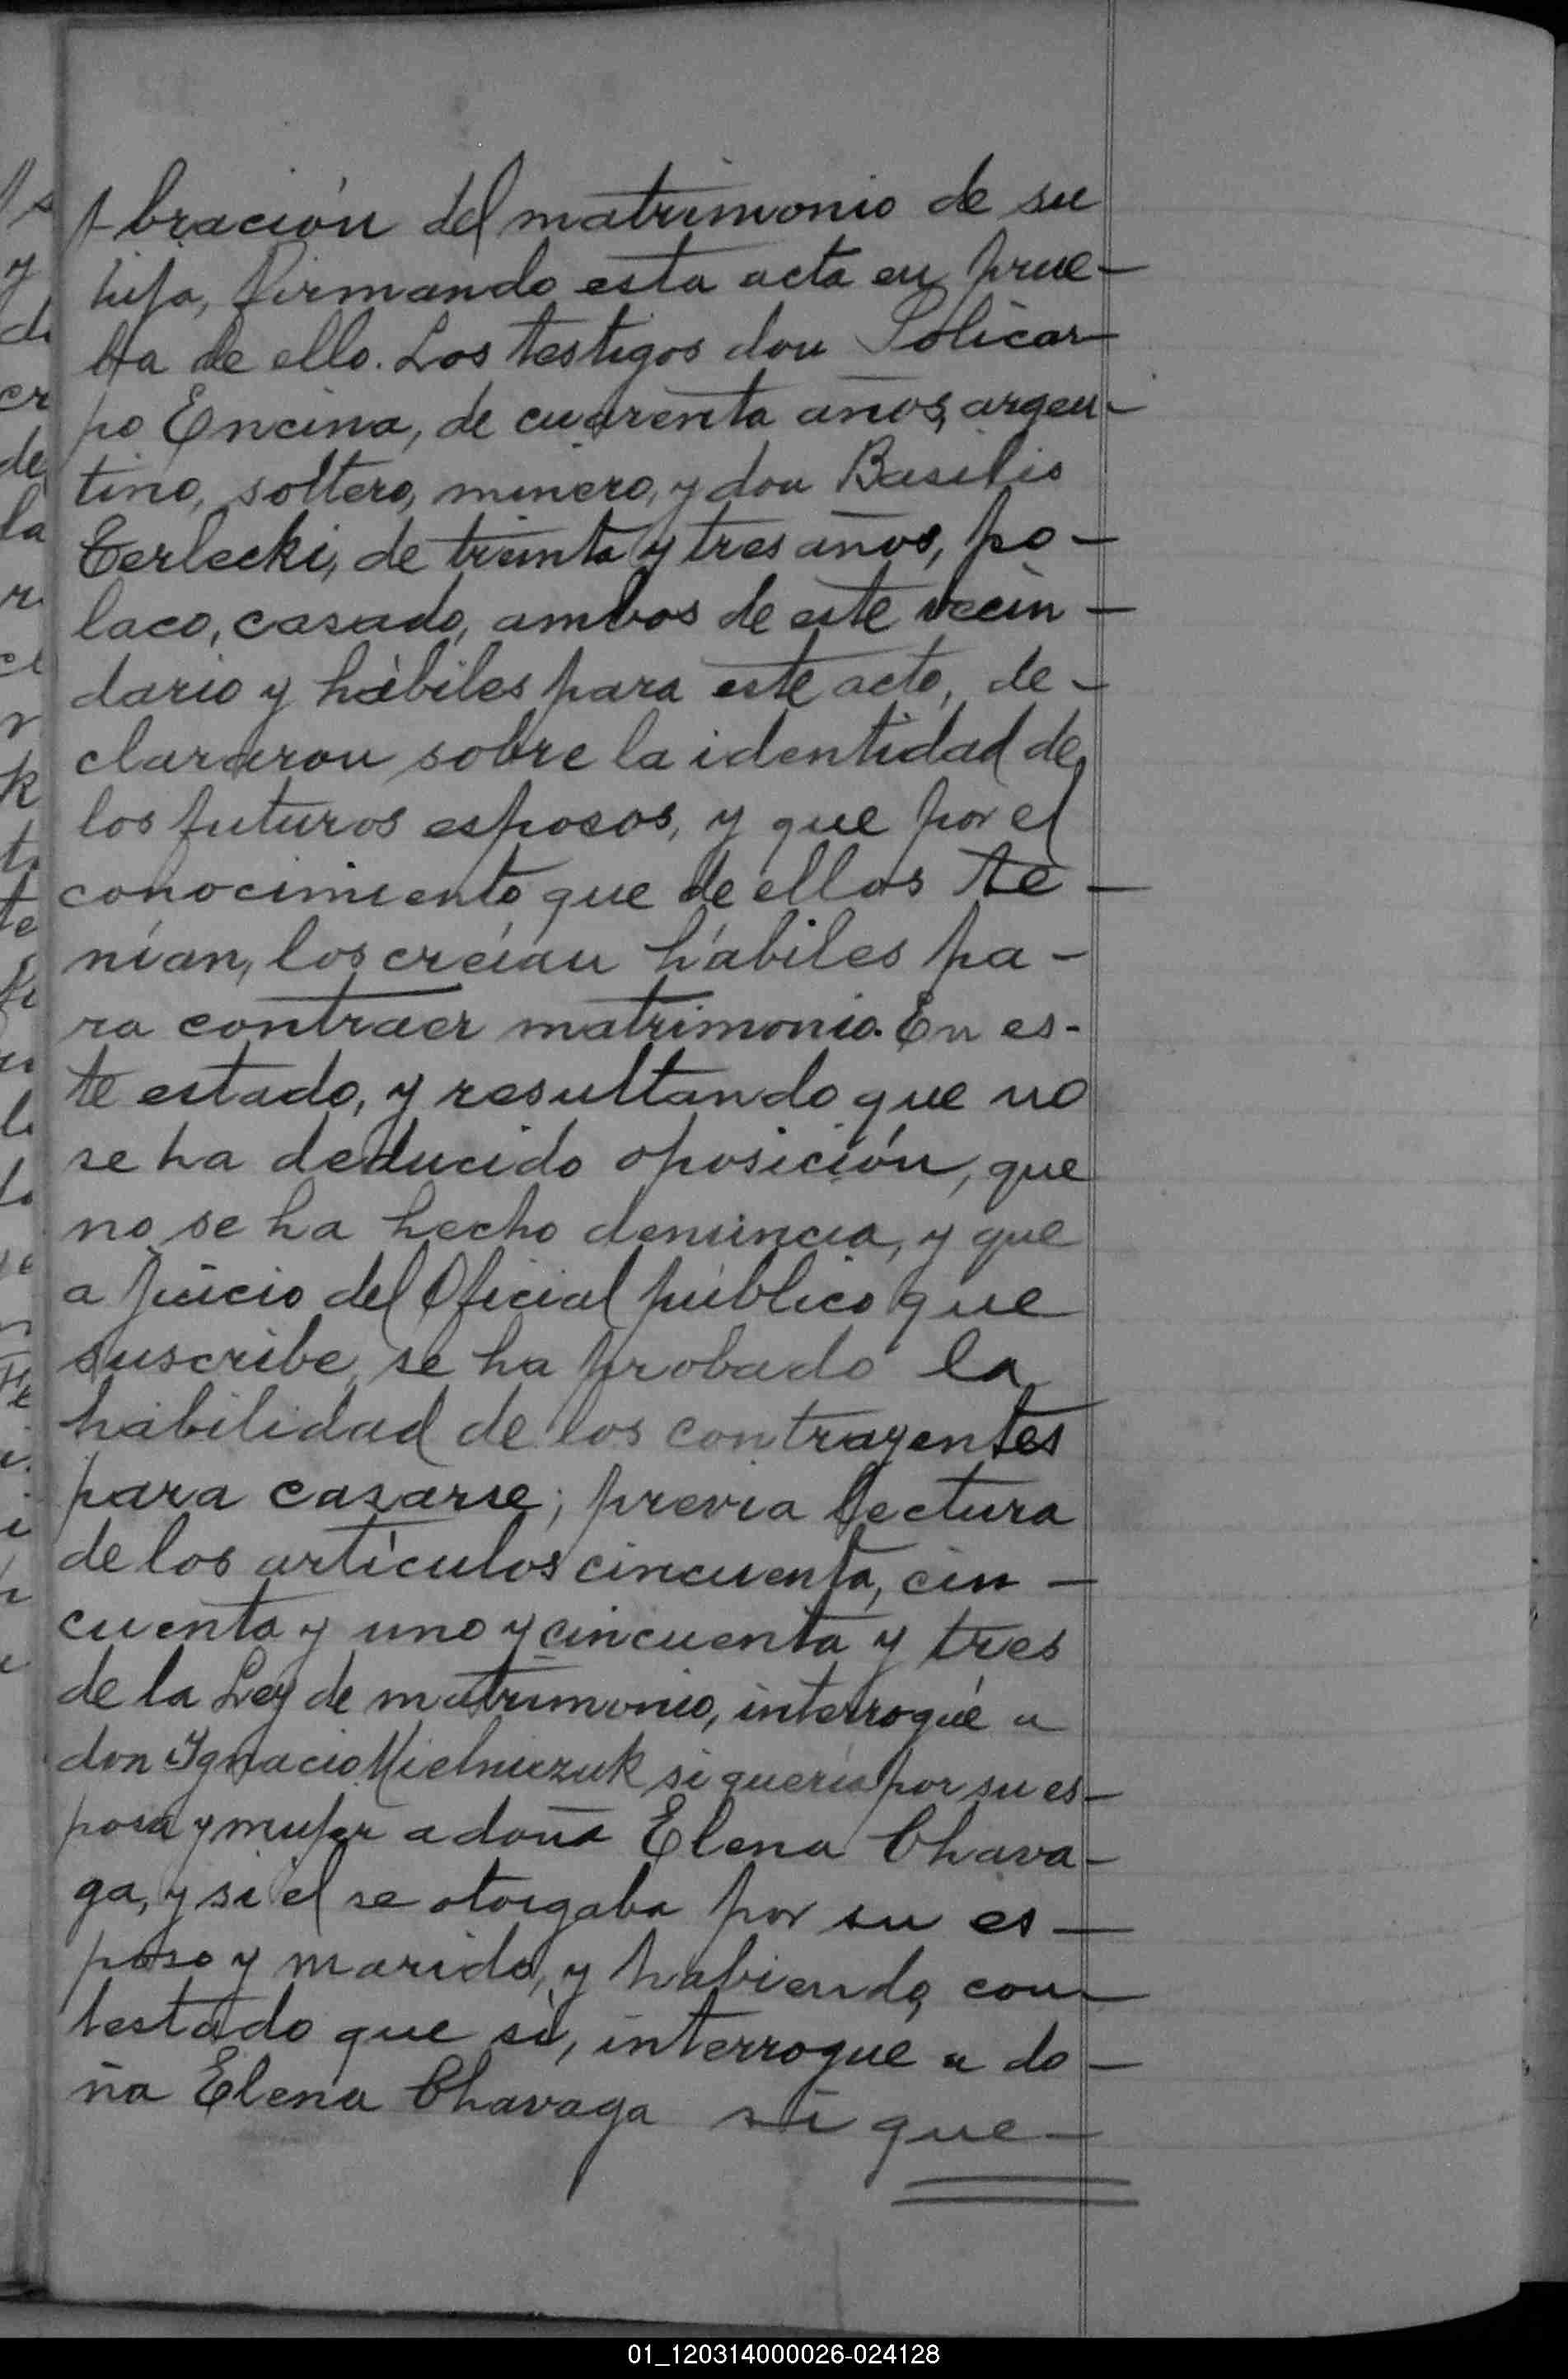 bración del matrimonio de su
hija, firmando esta acta en prue-
ba de ello. Los testigos don Policar-
po Encina, de cuarenta años, argen-
tino, soltero, minero, y don Basilio
Terlecki, de treinta y tres años, po-
laco, casado, ambos de este vecin-
dario y hábiles para este acto, de-
clararon sobre la identidad de
los futuros esposos, y que por el
conocimiento que de ellos te-
nían, los creían hábiles pa-
ra contraer matrimonio. En es-
te estado, y resultando que no
se ha deducido oposición, que
no se ha hecho denuncia, y que
a juicio del Oficial público que
suscribe, se ha probado la
habilidad de los contrayentes
para casarse; previa lectura
de los artículos cincuenta, cin-
cuenta y uno y cincuenta y tres
de la Ley de matrimonio, interrogué a
don Ygnacio Mielniczuk si quería por su es-
posa y mujer a doña Elena Chava-
ga, y si el se otorgaba por su es-
poso y marido, y habiendo con-
testado que sí, interrogué a do-
ña Elena Chavaga si que-
01_120314000026-024128